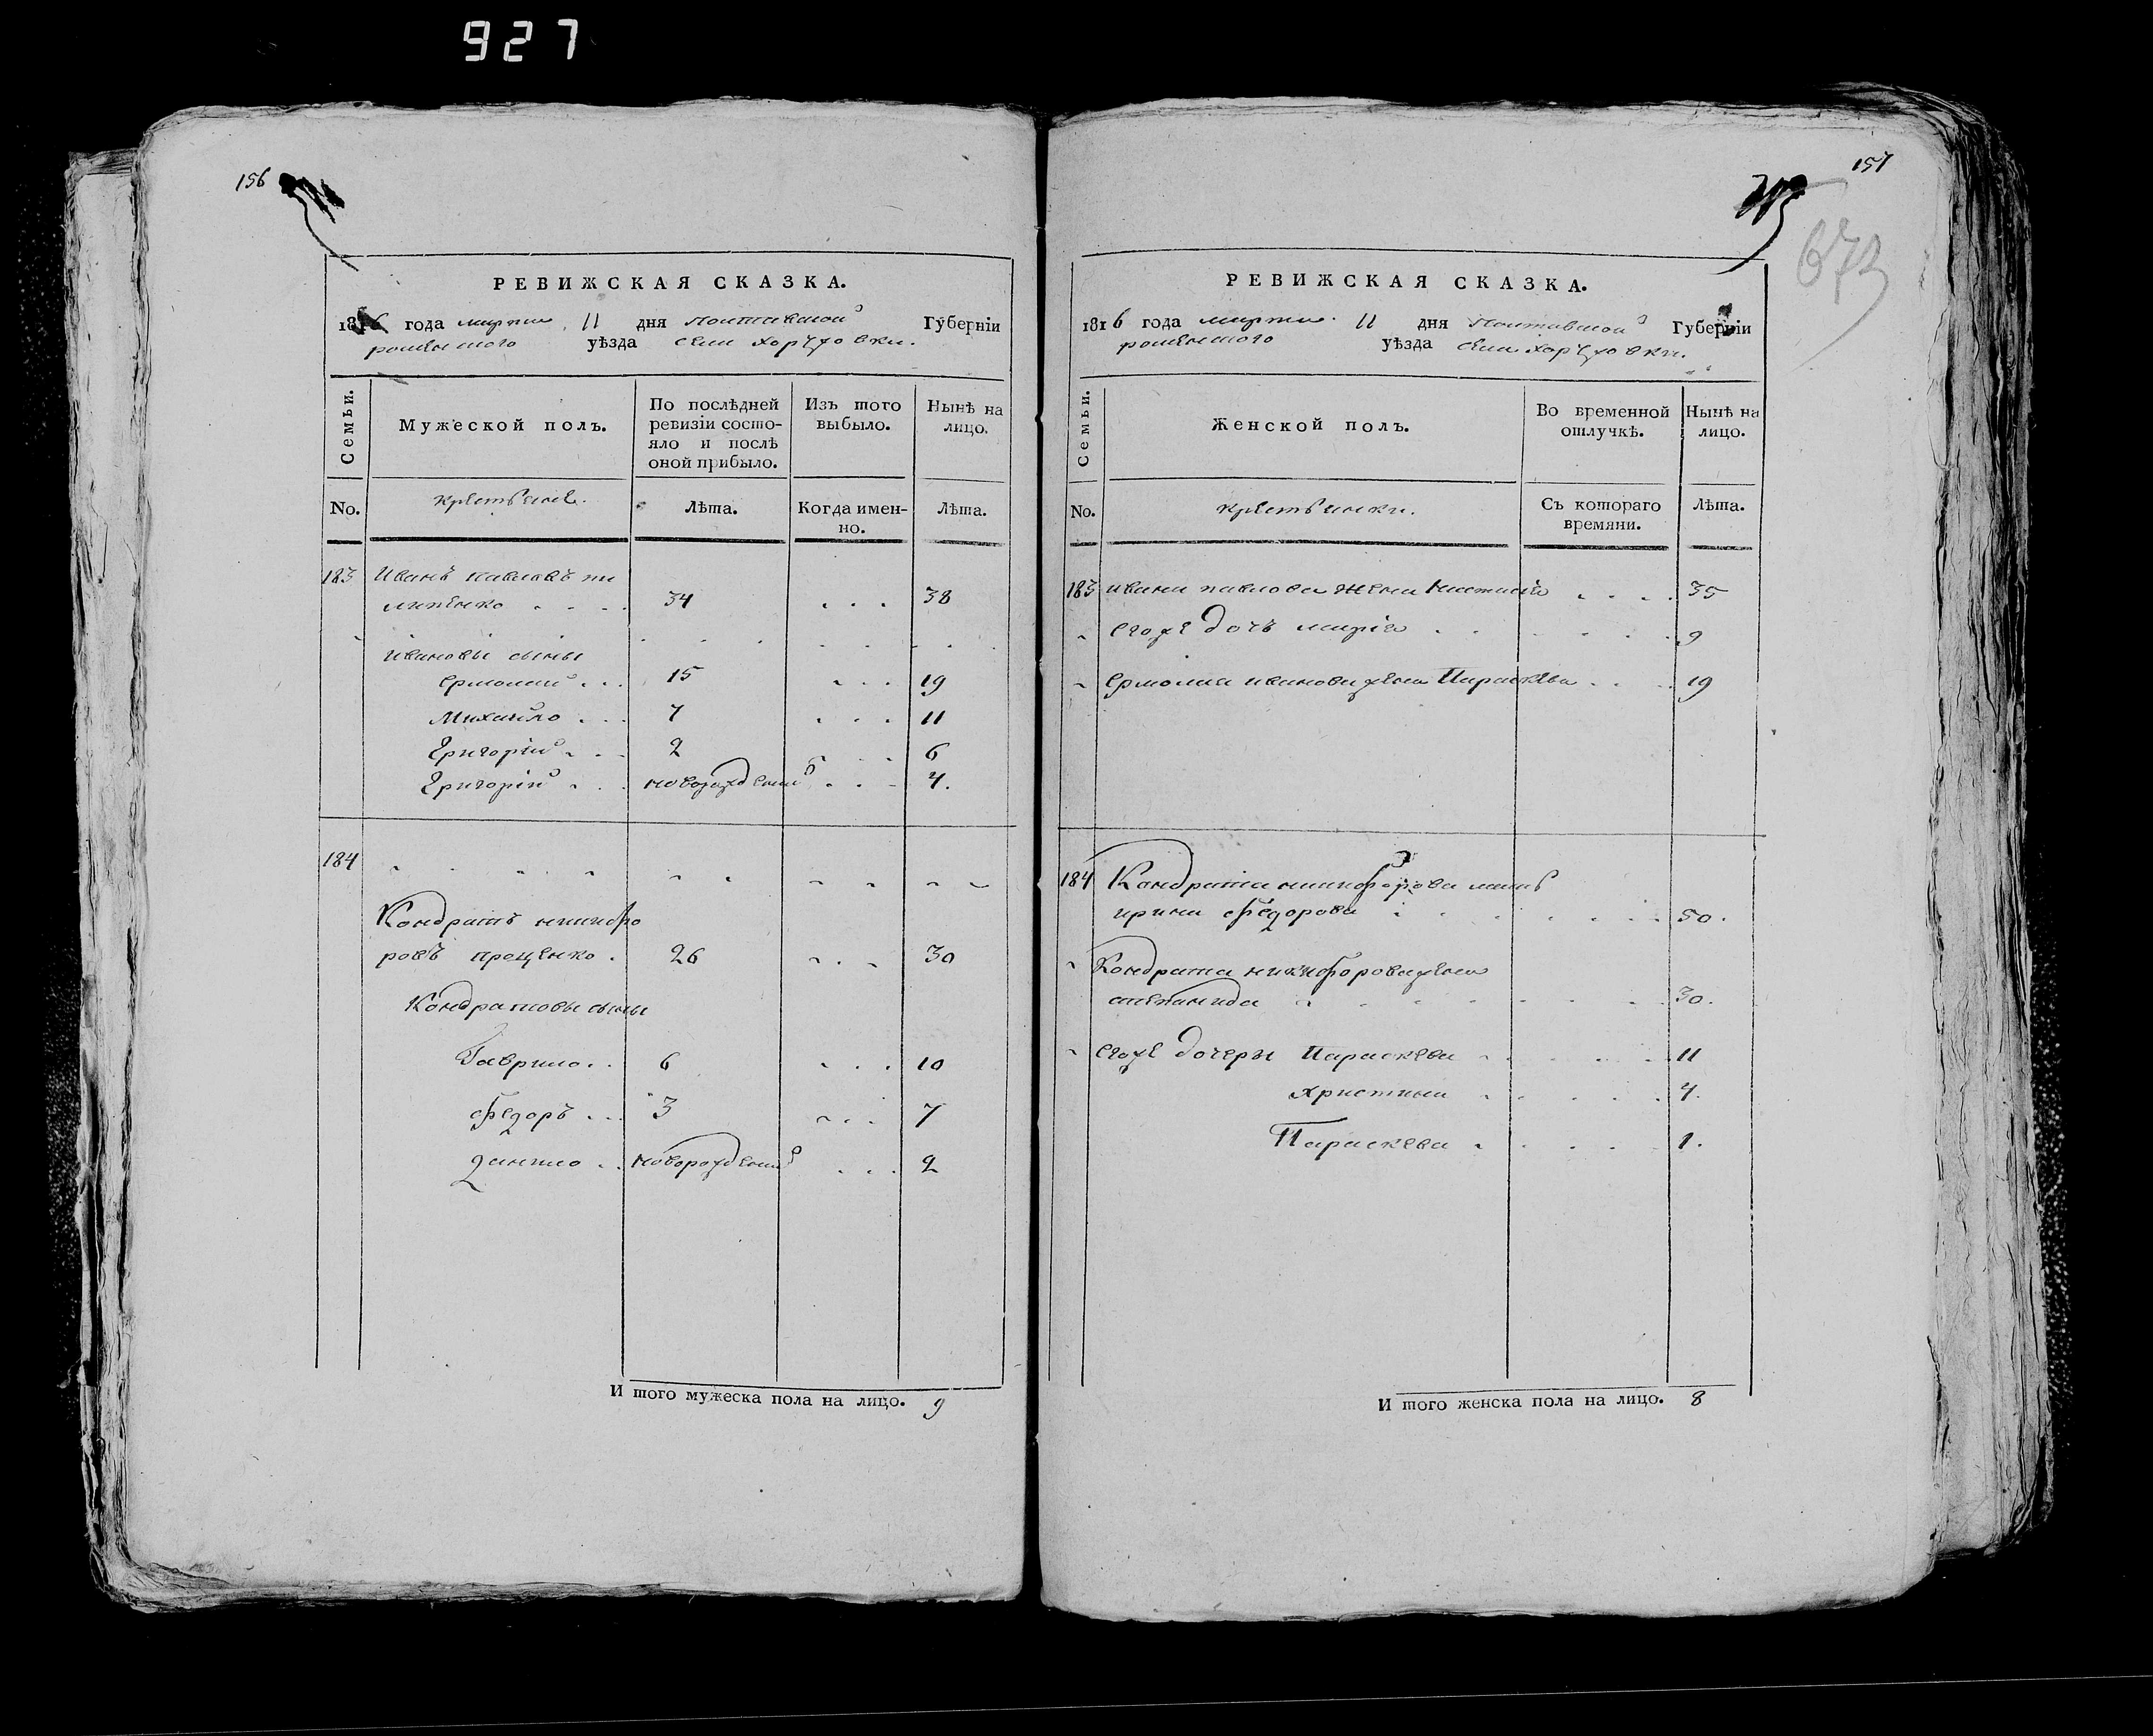 927
156
РЕВИЖСКАЯ СКАЗКА.
1816 года марта 11 дня Полтавшой Губерніи
роменшого уѣзда села хоружовки.
Семьи.
Мужеской полъ.
По послѣдней ревизіи состо-
яло и послѣ
оной прибыло.
Изъ того
выбыло.
Нынѣ на
лицо.
No.
крестьяне.
Лѣта.
Когда имен-
но.
Лѣта.
183 Иванъ павловъ пи
липенко 34 38
ивановы сыны
Ермолай 15 19
Михайло 7 11
Григорій 2 6
Григорій новорожденый 4.
184
Кондратъ никифо
ровъ проценко 26 30
Кондратовы сыны
Гаврило 6 10
Федоръ 3 7
Данило новорожденый 2
И того мужеска пола на лицо. 9
157
673
РЕВИЖСКАЯ СКАЗКА.
1816 года марта 11 дня Полтавшой Губерніи
роменшого уѣзда села хоружовки.
Семьи.
Женской полъ.
Во временной
отлучкѣ.
Нынѣ на
лицо.
No.
крестьянки.
Съ котораго
времяни.
Лѣта.
183 ивана павлова жена Настасія 35
егоже дочъ марія 9
Ермолая иванова жена Параскева 19
184 Кондрата никифорова мать
ирина Федорова 50.
Кондрата никифорова жена
степанида 30.
егоже дочери Параскева 11
христина 4.
Параскева 1.
И того женска пола на лицо. 8